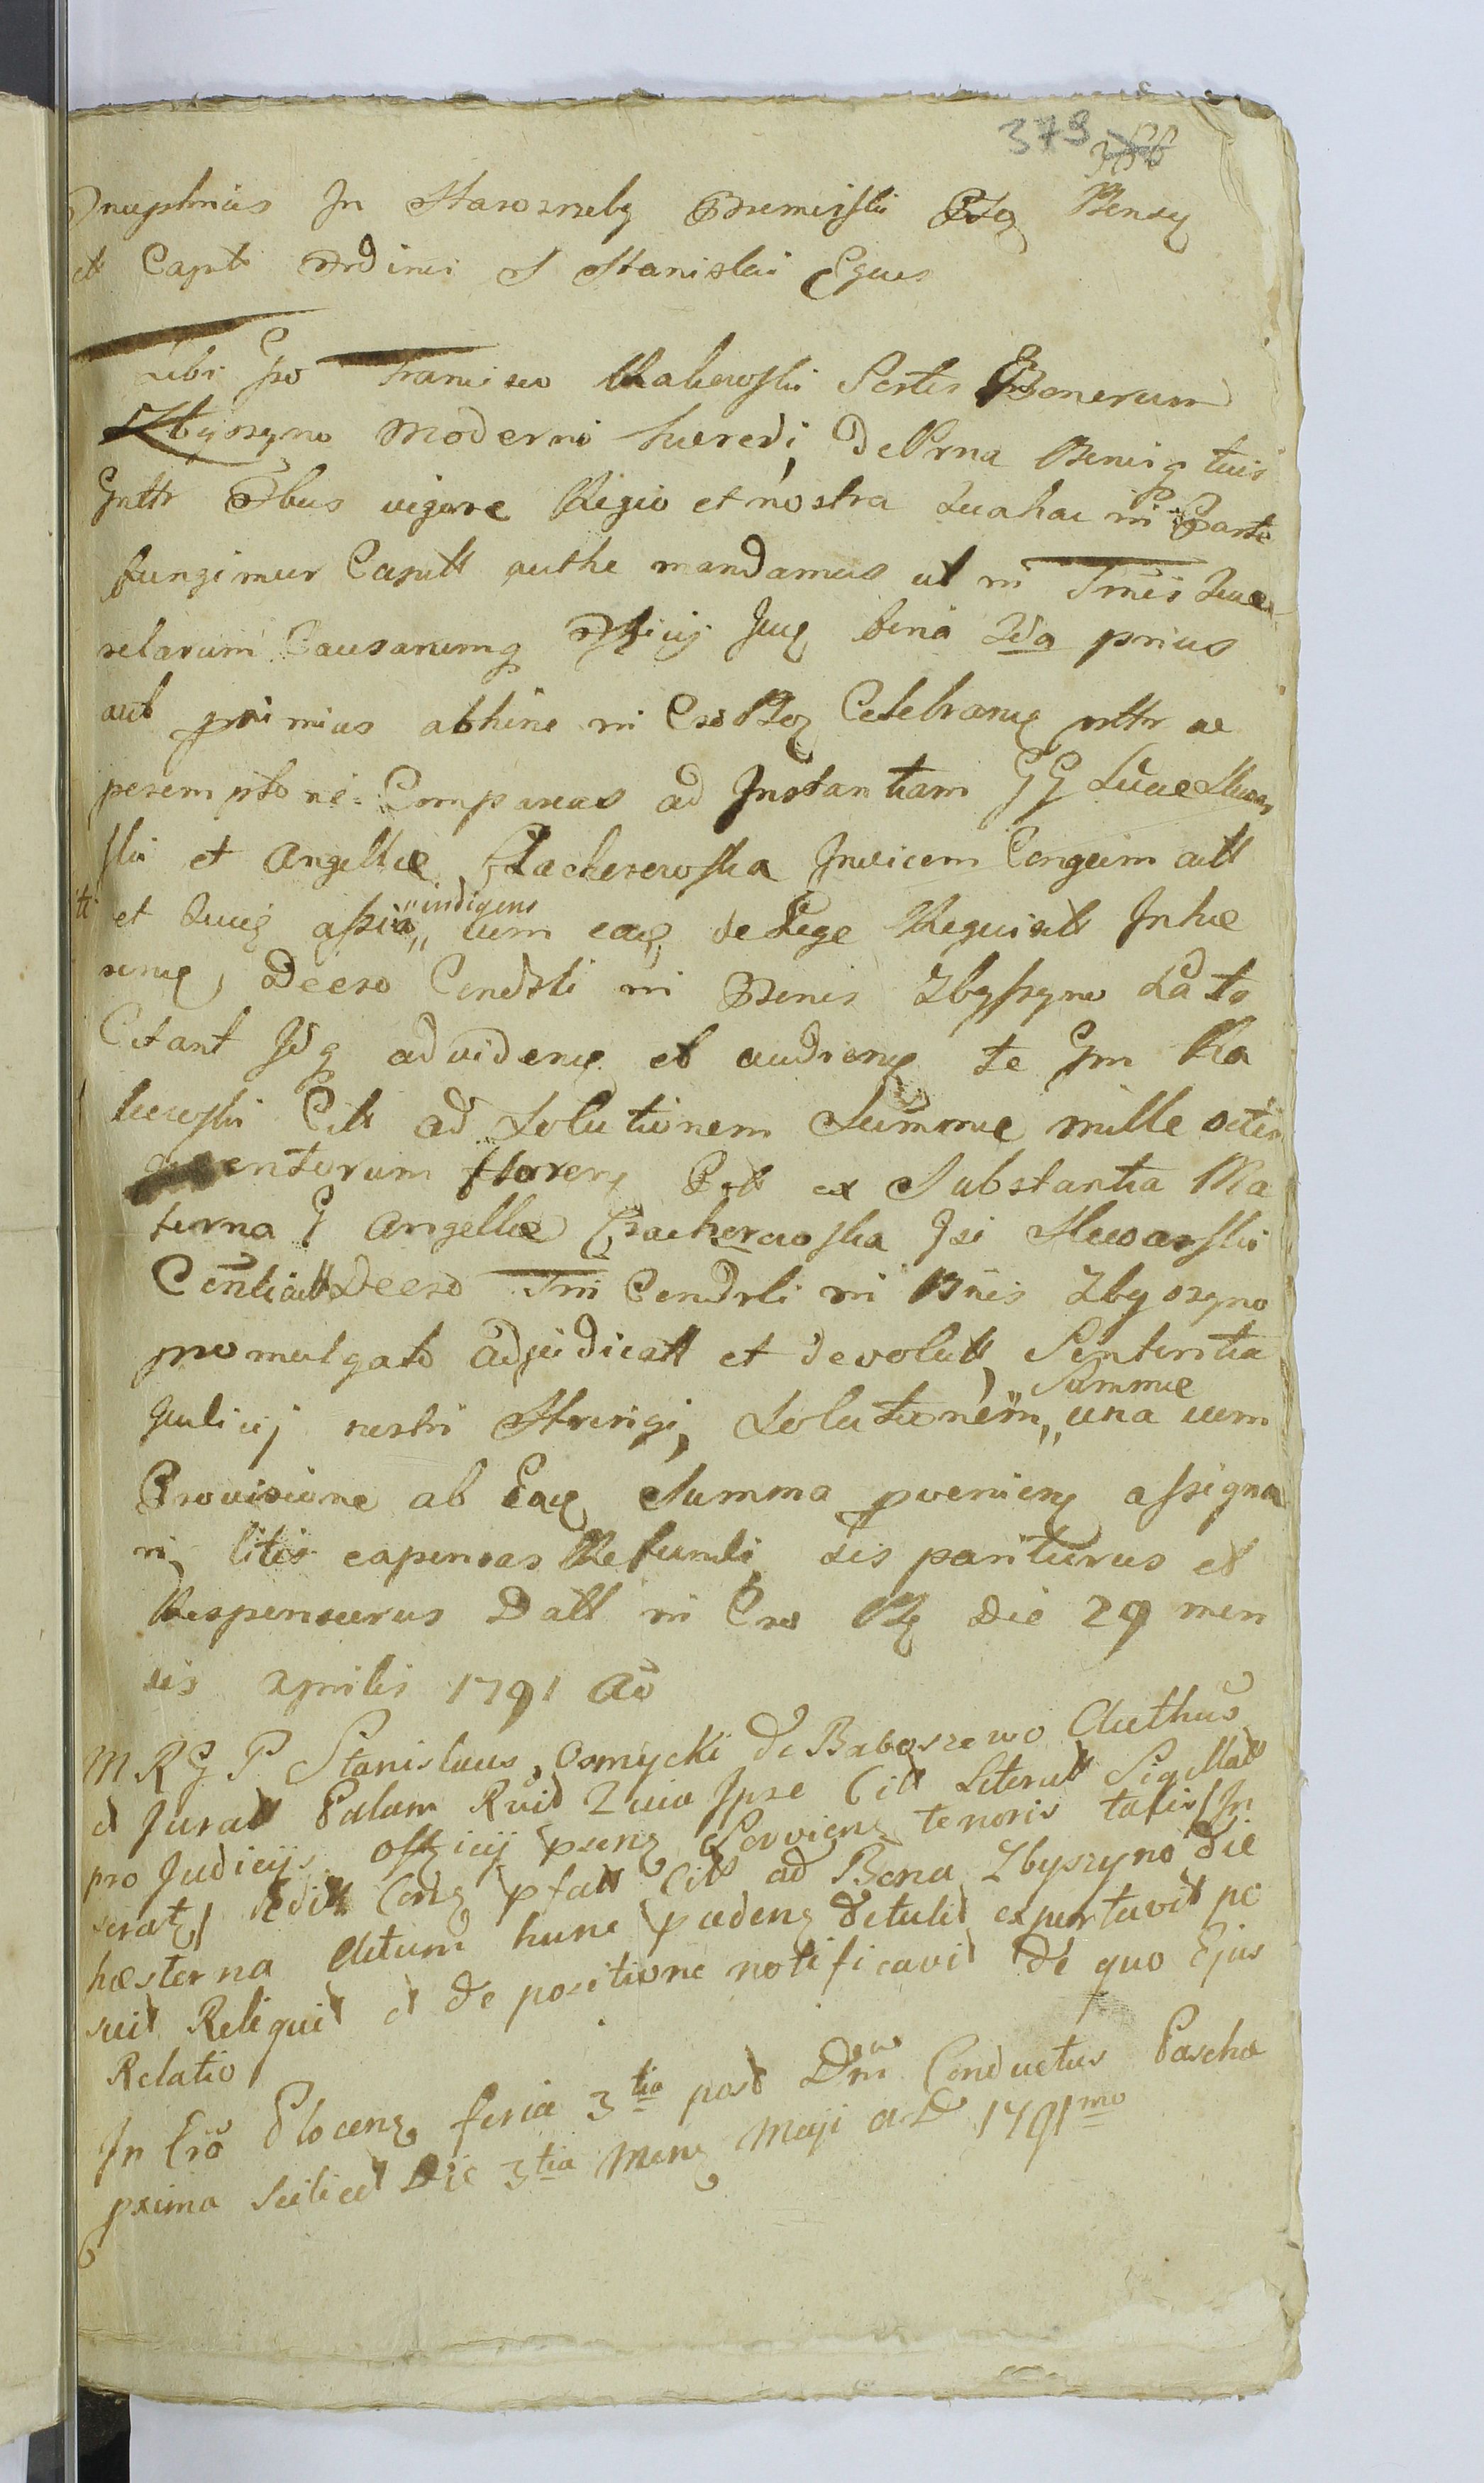 379 356
Onuphrius In Starozreby Bromirski Plo Bensq
et Capt Ordinis S Stanislai Eques
Tibi Gso Francisco Makowski Sortis Bonorum
Zbyszyno moderno hæredi, de Prna Benisq tuis
Gnltr Obus vigore Regio et nostra qua hac in Parte
fungimur Capitt authe mandamus ut in Tmis Quæ
relarum Causarumq Offij huj fena 2da prius
aut primius abhinc in Cro Ploq Celebranq prttr ac
peremptorie Compareas ad Instantiam GG Lucæ
ski et Angellæ Czacherowska Invicem Conguim att
et huiq assia indigens cum eaq de Lege Requisit Inhæ
renq, Decro Condsli in Bonis Zbyszyno Lato
Citant Idq ad videnq et audienq te Gm Ma
kowski Citt ad Solutionem Summæ mille octin
gentorum floreng Polt ex Substantia Ma
terna G Angellæ Czacherowska Gsi
Decro Tni Condsli in Bnis Zbyszyno
promulgato adjudicatt et devolutt, Sententia
Judicij nostri Stringi, Solutionem Summæ una cum
Provisione ab Eaq Summa pvenienq assigna
ri, litis expensas Refundi, Sis pariturus et
Responsurus Datt in Cro Plq Die 29 men
sis Aprilis 1791 Ao
M R G P Stanislaus Osmycki de Baboszewo Authus
et Juratt Palam Rvit Quia Ipse Citt Literatt Sigillatt
pro Judicijs Officij pseng Servieng tenoris talis In
serat, Edit Cong pfatt Citt ad Bona Zbyszyno die
hæsterna Actum hunc pcedeng detulit exportavit po
suit Reliquit et de positione notificavit de quo Ejus
Relatio
In Cro Ploceng feria 3tia post Dm Conductus Paschæ
pxima Scilicet Die 3tia Meng Maji A D 1791mo